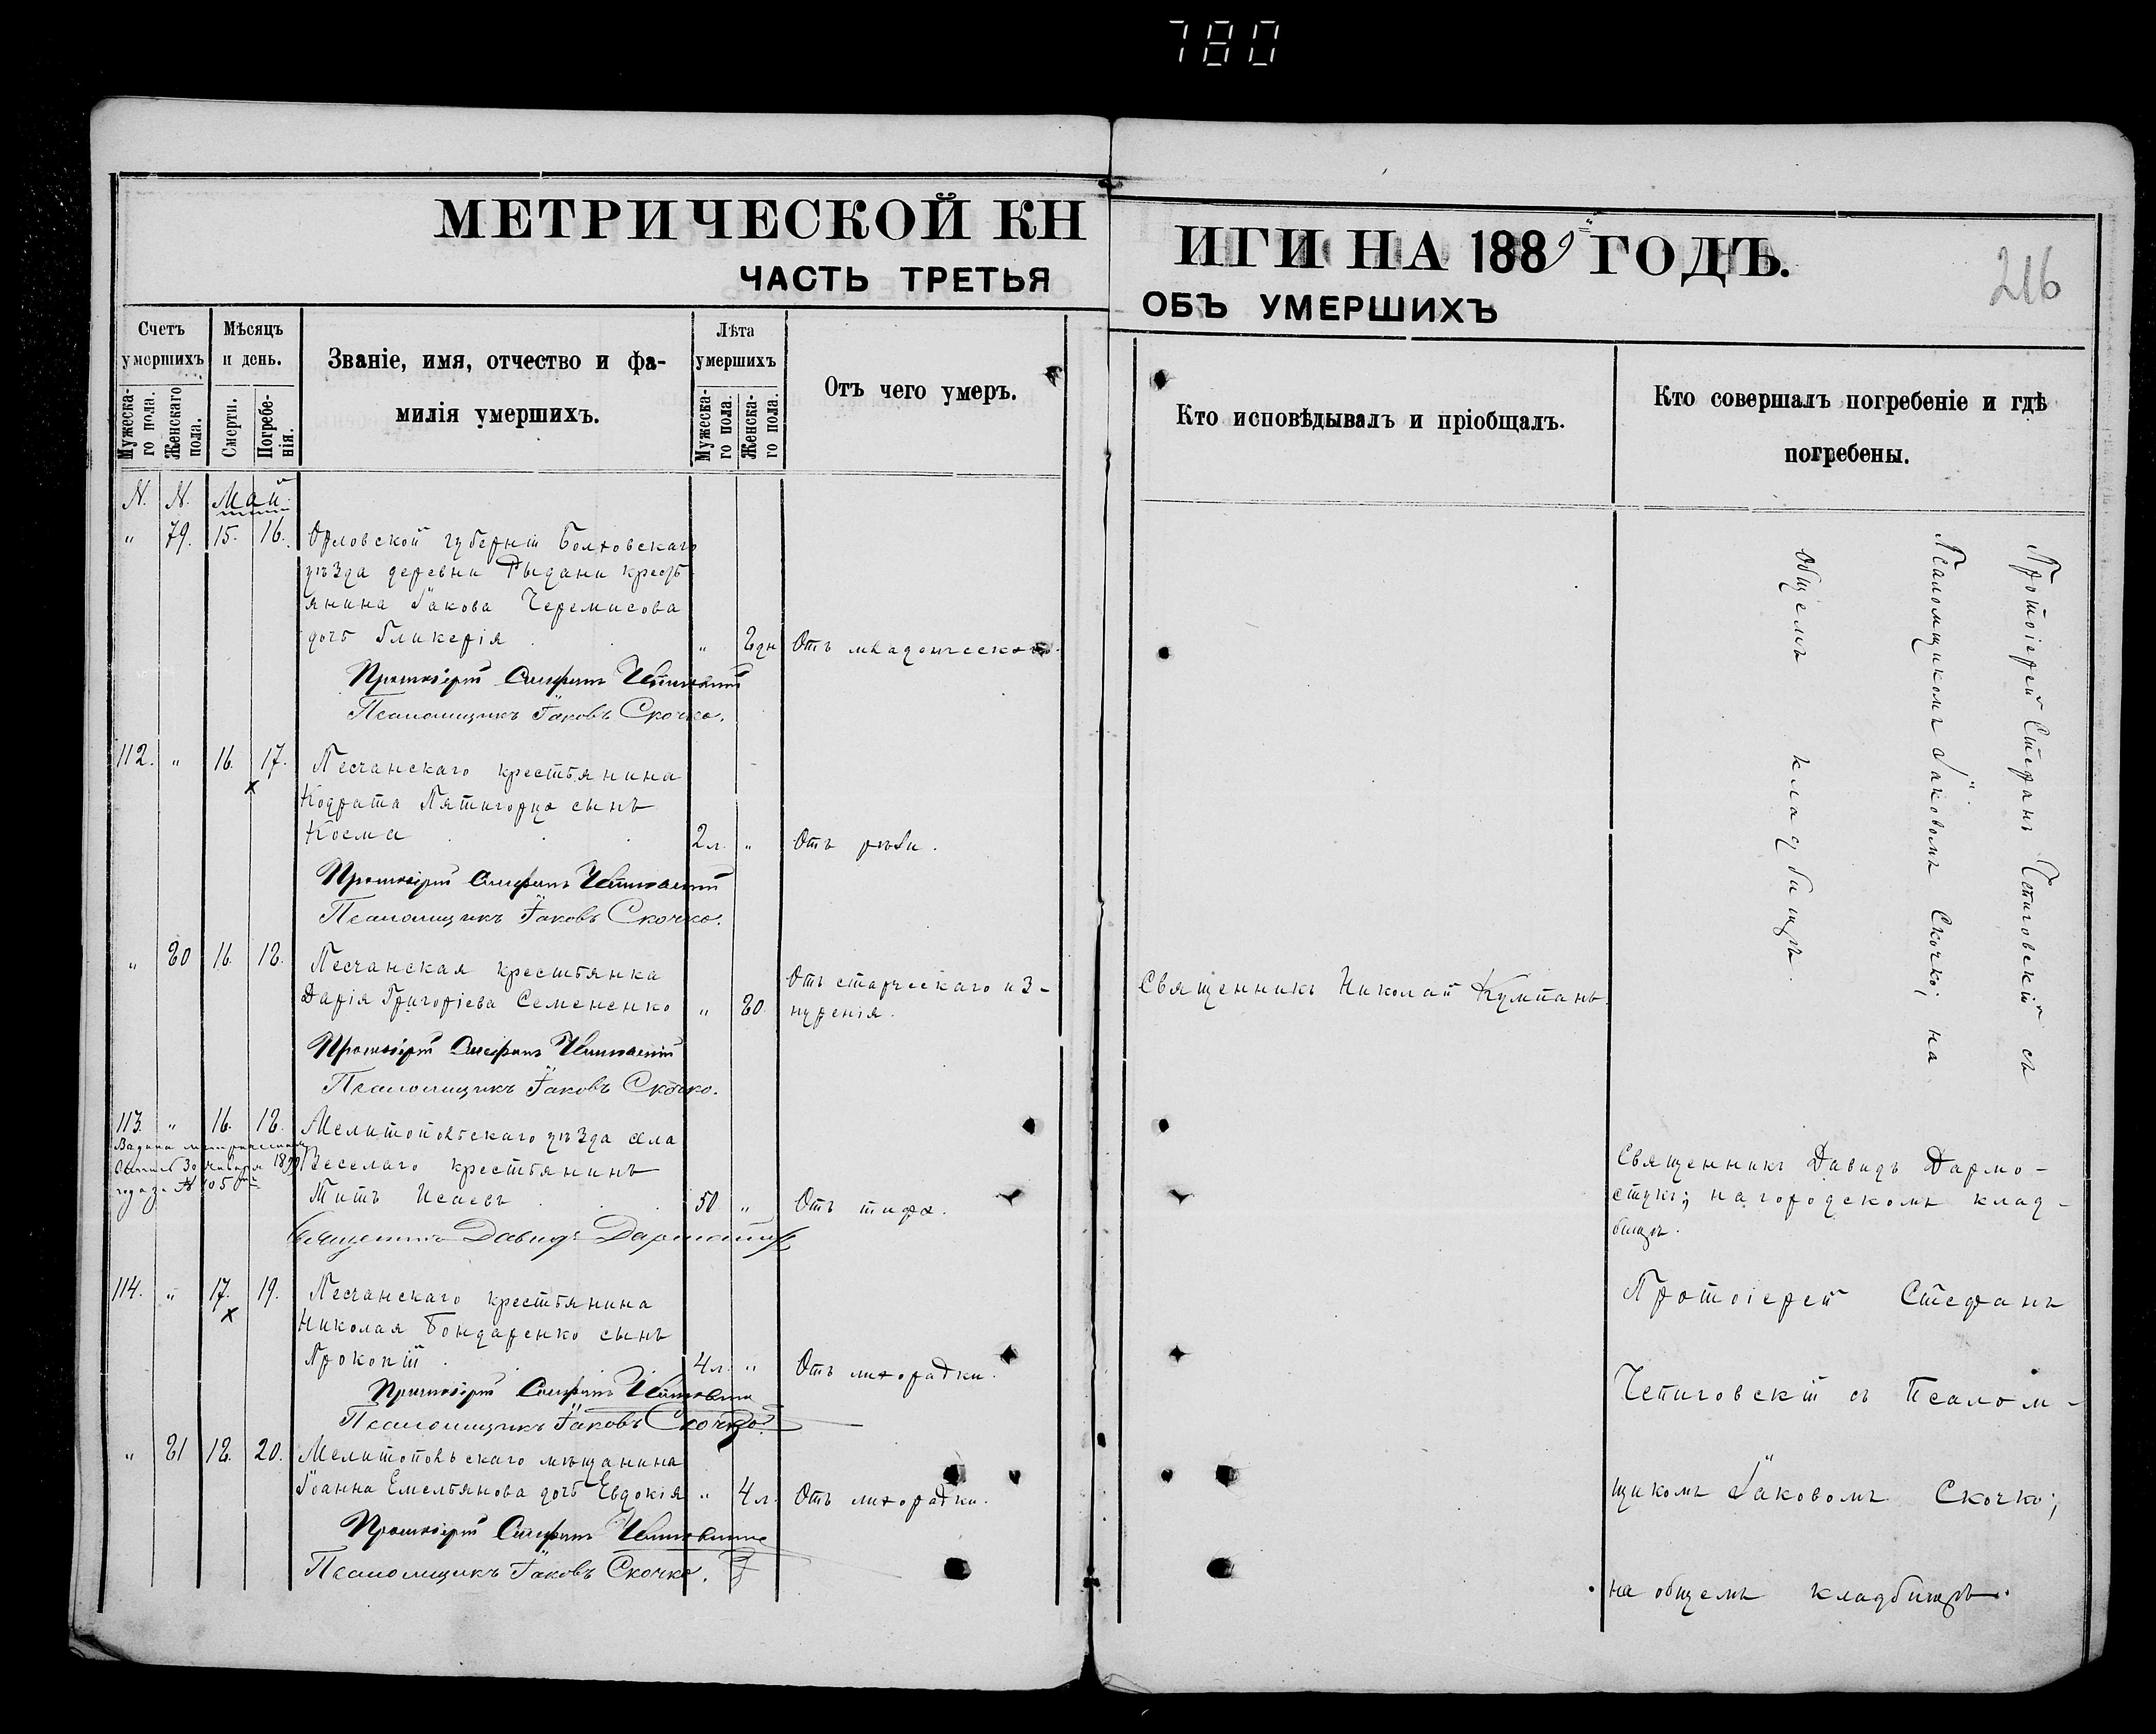 780
МЕТРИЧЕСКОЙ КНИГИ НА 1889 ГОДЪ.
ЧАСТЬ ТРЕТЬЯ ОБЪ УМЕРШИХЪ
216
Счетъ умершихъ
Мужеска-го пола.
Женскаго пола.
Мѣсяцъ и день.
Смерти.
Погребе-нія.
Званіе, имя, отчество и фа-
милія умершихъ.
Лѣта умершихъ
Мужеска-го пола.
Женска-го пола.
Отъ чего умеръ.
Кто исповѣдывалъ и пріобщалъ.
Кто совершалъ погребеніе и гдѣ
погребены.
N. N. Май
„ 79. 15. 16. Орловской губерніи Болховскаго
уѣзда деревни крестъ
янина Іакова Черемисова
дочь Гликерія „ 8дн Отъ младенческой
Протоіерей Стефанъ Чепиговскій
Псаломщикъ Іаковъ Скочко.
112. „ 16. 17. Песчанскаго крестьянина
Кодрата Пятигорца сынъ
Косма 2 л. „ Отъ
Протоіерей Стефанъ Чепиговскій
Псаломщикъ Іаковъ Скочко.
„ 80 16. 18. Песчанская крестьянка
Дарія Григоріева Семененко „ 80. Отъ старческаго из-
нуренія. Священникъ Николай Кумпанъ.
Протоіерей Стефанъ Чепиговскій
Псаломщикъ Іаковъ Скочко.
Протоіерей Стефанъ Чепиговскій съ
Псаломщикомъ Іаковомъ Скочко; на
общемъ кладбищѣ.
113. „ 16. 18. Мелитопольскаго уѣзда села
Веселаго крестьянинъ
Титъ Исаевъ 50 „ Отъ тифа.
Священникъ Давидъ
Священникъ Давидъ Дармо-
стукъ; на городскомъ клад-
бищѣ.
114. „ 17. 19. Песчанскаго крестьянина
Николая Бондаренко сынъ
Прокопій 4 л. „ Отъ лихорадки.
Протоіерей Стефанъ Чепиговскій
Псаломщикъ Іаковъ Скочко.
„ 81 18. 20. Мелитопольскаго мѣщанина
Іоанна Емельянова дочь Евдокія „ 4 л. Отъ лихорадки.
Протоіерей Стефанъ Чепиговскій
Псаломщикъ Іаковъ Скочко.
Протоіерей Стефанъ
Чепиговскій съ Псалом-
щикомъ Іаковомъ Скочко;
на общемъ кладбищѣ.